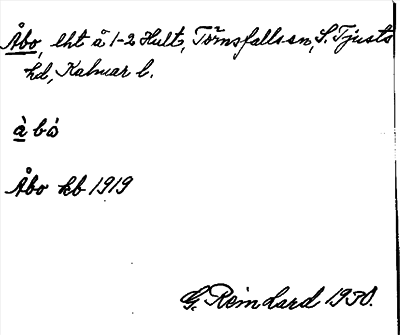 Åbo, lht å 1-2 Hult, Törnsfalls sn, S. Tjusts
hd, Kalmar l.
à bó
Åbo kb 1919
G. Reinhard 1930.